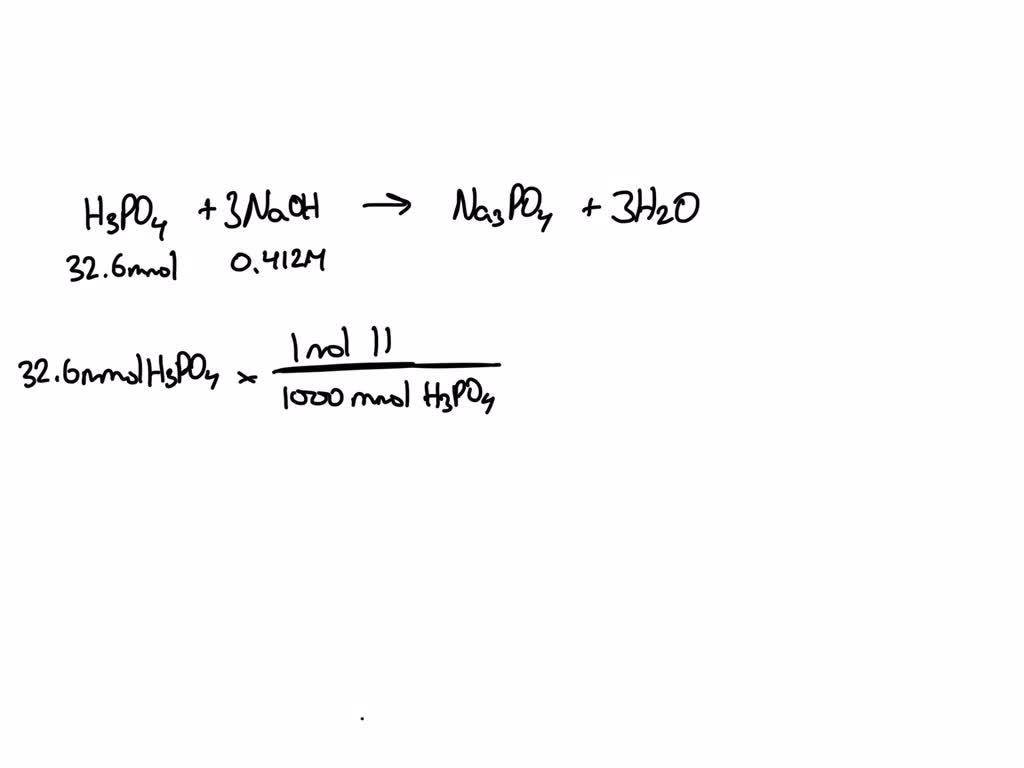 H₃PO₄ + 3NaOH → Na₃PO₄ + 3H₂O
32.6mmol 0.412M
32.6mmol H₃PO₄ × 1 mol 11
1000 mmol H₃PO₄